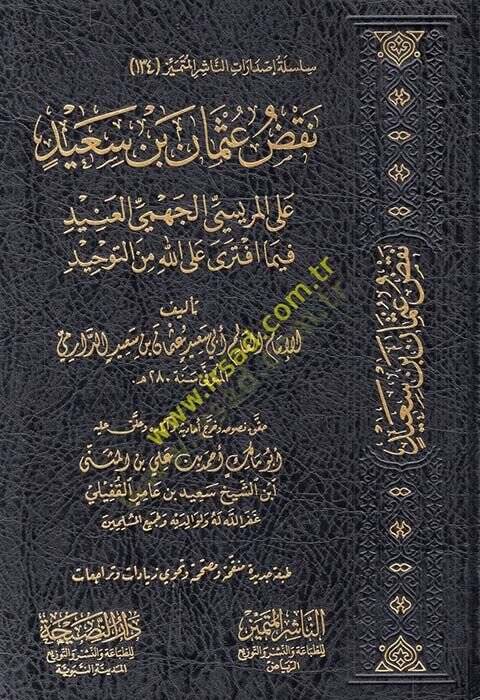 سلسلة إصدارات الناشر المتميز (١٣٤)
نقض عثمان بن سعيد
على المريسي الجهمي العنيد
فيما افترى على الله من التوحيد
تأليف
الإمام أبي سعيد عثمان بن سعيد الدارمي
المتوفى سنة ٢٨٠ هـ.
حقق نصوصه وخرج أحاديثه وعلق عليه
أبو مالك أحمد بن علي بن المثنى
ابن الشيخ سعيد بن عامر القفيلي
غفر الله له ولوالديه ولجميع المسلمين
طبعة جديدة منقحة ومصححة وتحوي زيادات وتراجعات
الناشر المتميز
للطباعة والنشر والتوزيع
الرياض
دار النصيحة
للطباعة والنشر والتوزيع
المدينة النبوية
نقض عثمان بن سعيد
www.irsad.com.tr